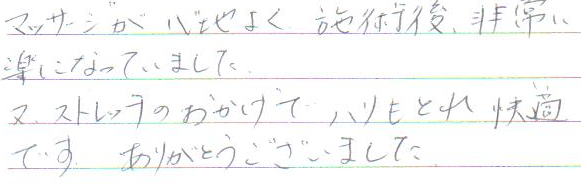 マッサージが心地よく 施術後、非常に
楽になっていました。
又、ストレッチのおかげで ハリもとれ 快適
です。 ありがとうございました。